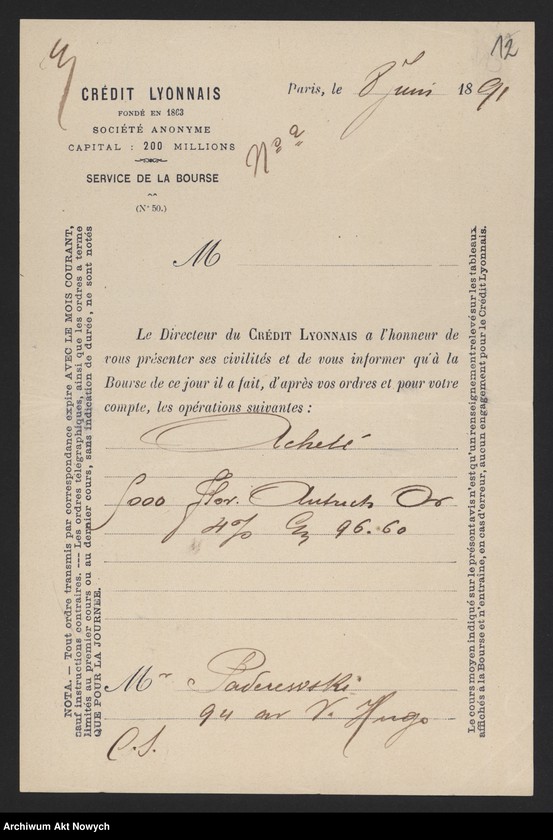 12
CRÉDIT LYONNAIS
FONDÉ EN 1863
SOCIÉTÉ ANONYME
CAPITAL : 200 MILLIONS
SERVICE DE LA BOURSE
(N° 50.)
Paris, le 8 Juin 1891
M
Le Directeur du CRÉDIT LYONNAIS a l'honneur de
vous présenter ses civilités et de vous informer qu'à la
Bourse de ce jour il a fait, d'après vos ordres et pour votre
compte, les opérations suivantes :
Acheté
5000 Flor. Autrich Or
4% 96.60
Mr Paderewski
94 av V. Hugo
C.S.
NOTA. — Tout ordre transmis par correspondance expire AVEC LE MOIS COURANT,
sauf instructions contraires. — Les ordres télégraphiques, ainsi que les ordres à terme
limités au premier cours ou au dernier cours, sans indication de durée, ne sont notés
QUE POUR LA JOURNÉE.
Le cours moyen indiqué sur le présent avis n'est qu'un renseignement relevé sur les tableaux
affichés à la Bourse et n'entraîne, en cas d'erreur, aucun engagement pour le Crédit Lyonnais.
Archiwum Akt Nowych